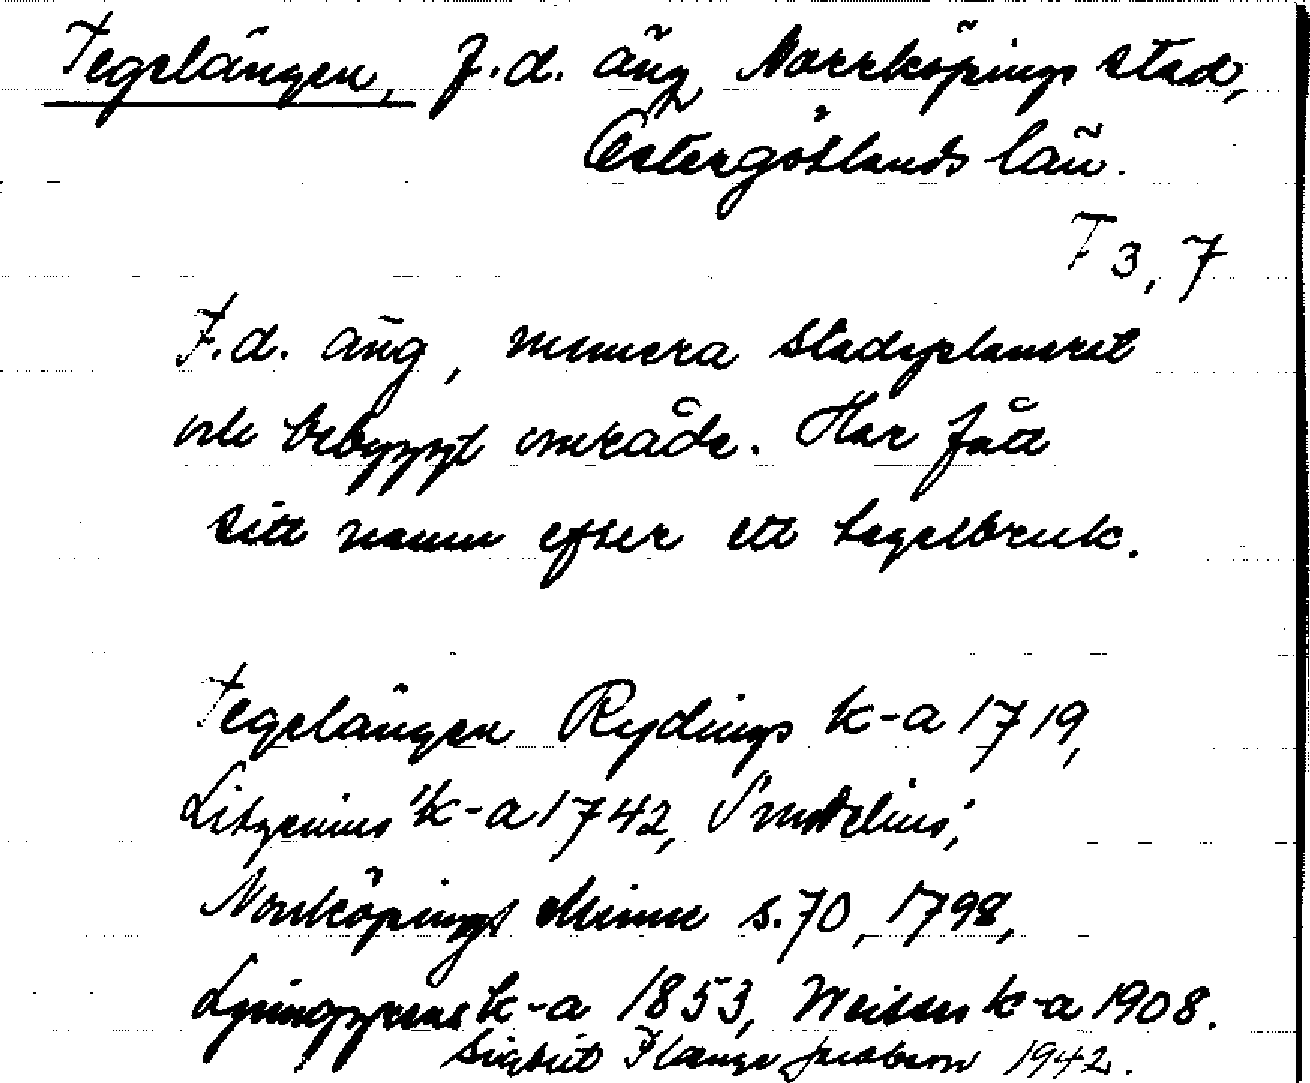 Tegelängen, f.d. äng Norrköpings stad,
Östergötlands län.
T 3, 7
F.d. äng, numera stadsplanerat
och bebyggt område. Har fått
sitt namn efter ett tegelbruk.
Tegelängen Rydings k-a 1719,
Litzenius k-a 1742,
Norrköpings Minne s. 70, 1798,
Ljunggrens k-a 1853, k-a 1908.
Sigbrit Plænge Jacobson 1942.